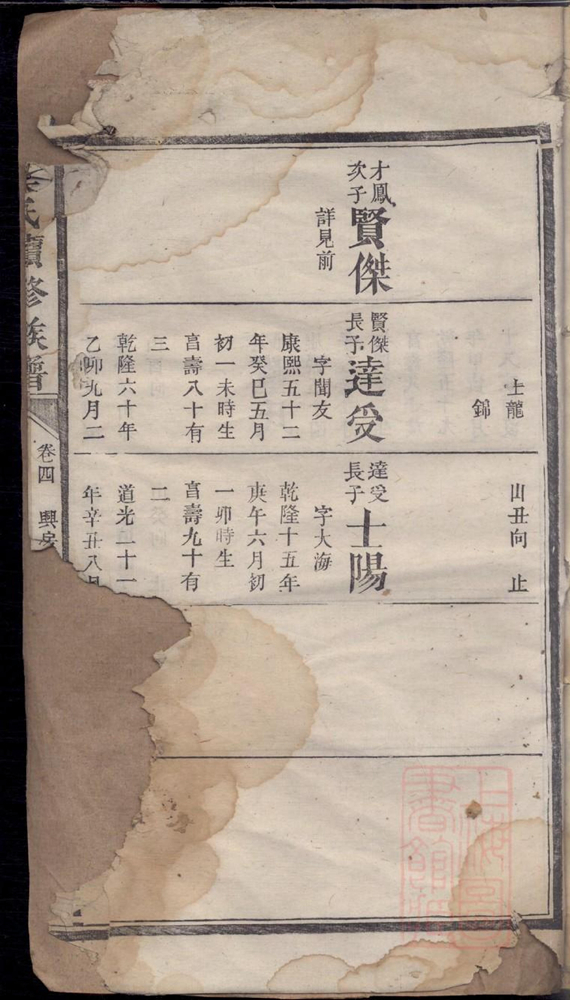 士龍
錦
山丑向 止
才鳳
次子
賢傑
詳見前
賢傑
長子
達受
字聞友
康熙五十二
年癸巳五月
初一未時生
享壽八十有
三
乾隆六十年
乙卯九月二
達受
長子
士陽
字大海
乾隆十五年
庚午六月初
一卯時生
享壽九十有
二
道光 十一
年辛丑八月
氏續修族譜
卷四 興房